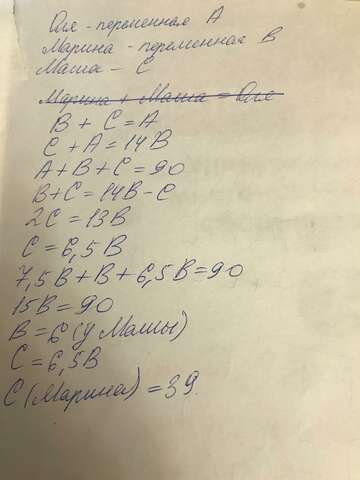 Оля - переменная A
Марина - переменная B
Маша - C
Марина + Маша = Оля
B + C = A
C + A = 14B
A + B + C = 90
B + C = 14B - C
2C = 13B
C = 6,5B
7,5B + B + 6,5B = 90
15B = 90
B = 6 (у Маши)
C = 6,5B
C (Марина) = 39.